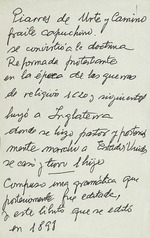 Piarres de Urte y Camino
fraile capuchino.
se convirtió a le doctrina
Reformada protestante
en la época de las guerras
de religion
huyó a Inglaterra
donde se hizo pastor y
mente marchó a Estados Unidos
se casó y tuvo 1 hijo
Compuso una gramática que
posteriormente fue editada,
este librito que se editó
en 1898